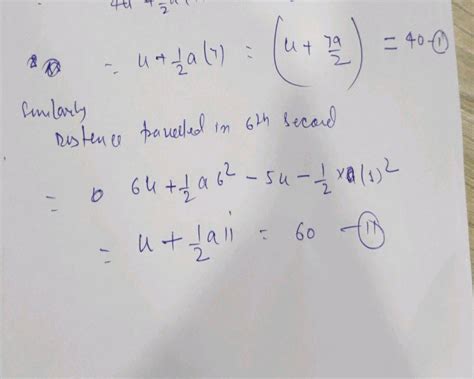 4u + ½a
= u + ½ a (7) = (u + 7a/2) = 40 - ①
Similarly
Distence travelled in 6th second
= 6u + ½ a 6² - 5u - ½ × a (1)²
= u + ½ a 11 = 60 - ⑪